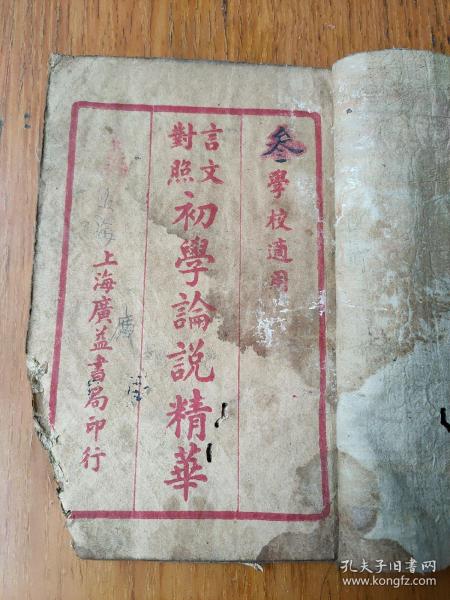 叁學校適用
言文對照
初學論說精華
上海廣益書局印行
上海
廣
孔夫子旧书网
www.kongfz.com